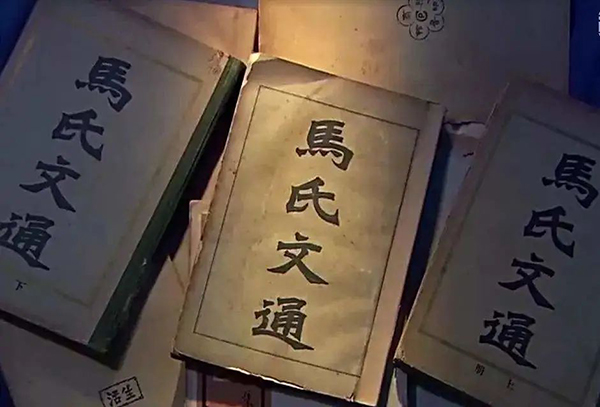 馬氏文通
下
馬氏文通
馬氏文通
上